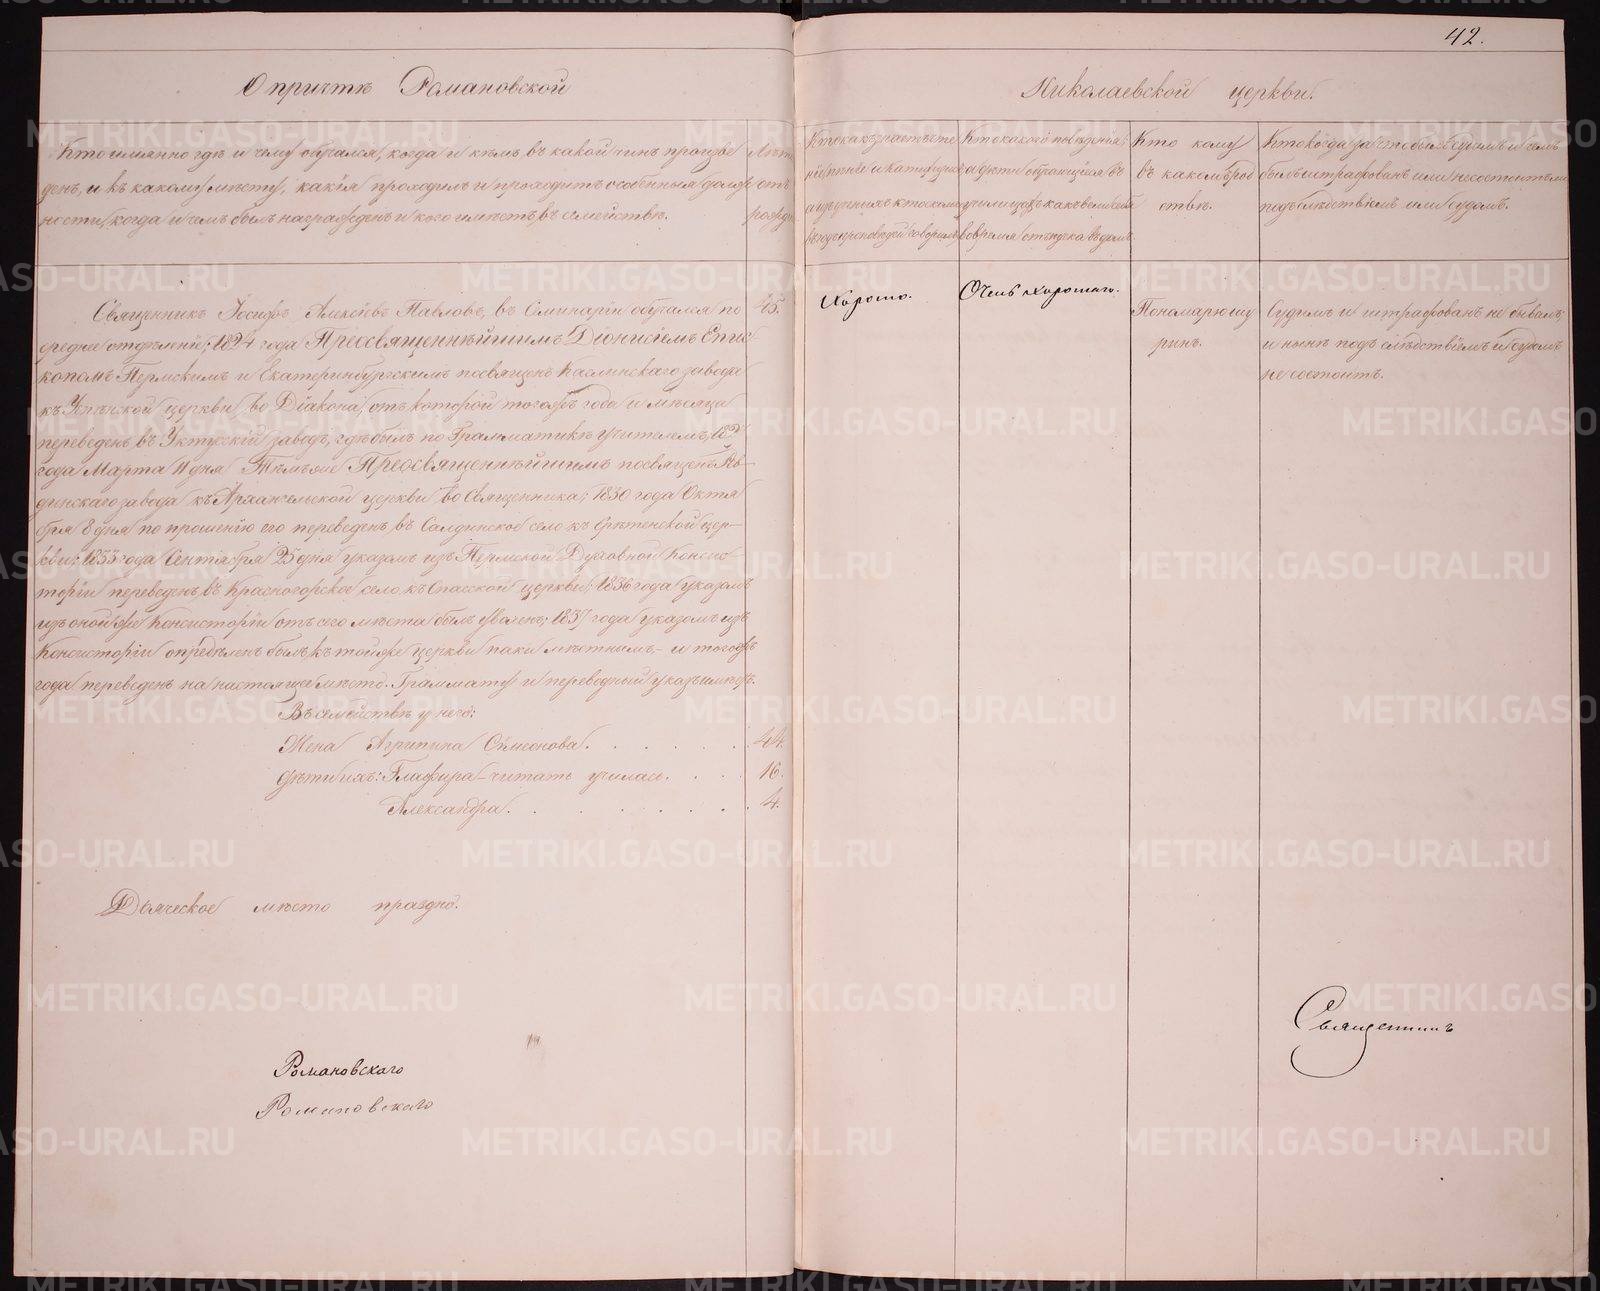 42.
О причтѣ Романовской
Николаевской церкви.
Кто имянно гдѣ и чему обучался, когда и кѣмъ въ какой чинъ произве
денъ, и къ какому мѣсту, какія проходилъ и проходитъ особенныя долж
ности, когда и чемъ былъ награжденъ и кого имѣетъ въ семействѣ.
Лѣтъ
отъ
рожде
Кто какого поведенія,
Кто кому
въ какомъ род
ствѣ.
Кто когда за что былъ судимъ и чемъ
былъ штрафованъ или не состоитъ ли
подъ слѣдствіемъ или судомъ.
Священникъ Іосифъ Алексѣевъ Павловъ, въ Семинаріи обучался по
среднее отдѣленіе; 1824 года Преосвященнѣйшимъ Діонисіемъ Епис
копомъ Пермскимъ и Екатеринбургскимъ посвященъ Каслинскаго завода
къ Успенской церкви во Діакона, отъ которой того же года и мѣсяца
переведенъ въ Уктусскій заводъ, гдѣ былъ по Грамматикѣ учителемъ,
года Марта 11 дня Тѣмъже Преосвященнѣйшимъ посвященъ Рев-
динскаго завода къ Архангельской церкви во Священника; 1830 года Октя
бря 8 дня по прошенію его переведенъ въ Салдинское село къ Срѣтенской цер-
кви; 1833 года Сентября 25 дня указомъ изъ Пермской Духовной Консис
торіи переведенъ въ Красногорское село къ Спасской церкви; 1836 года указомъ
изъ оной же Консисторіи отъ сего мѣста былъ уволенъ; 1837 года указомъ изъ
Консисторіи опредѣленъ былъ къ той же церкви паки мѣстнымъ - и того же
года переведенъ на настоящее мѣсто. Граммату и переводный указъ имѣетъ.
Въ семействѣ у него:
Жена Агрипина Сѵмеонова. 44.
дѣти ихъ: Глафира - читать училась. 16.
Александра. 4.
45.
Хорошо.
Очень хорошаго.
Пономарю шу
ринъ.
Судимъ и штрафованъ не бывалъ,
и нынѣ подъ слѣдствіемъ и судомъ
не состоитъ.
Дьяческое мѣсто праздно.
Романовскаго
Романовскаго
Священникъ
METRIKI.GASO-URAL.RU